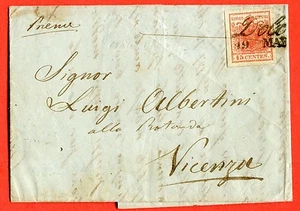 Preme
Dolo
19 MAR
15 CENTES.
Signor
Luigi Albertini
alla Rotonda
Vicenza